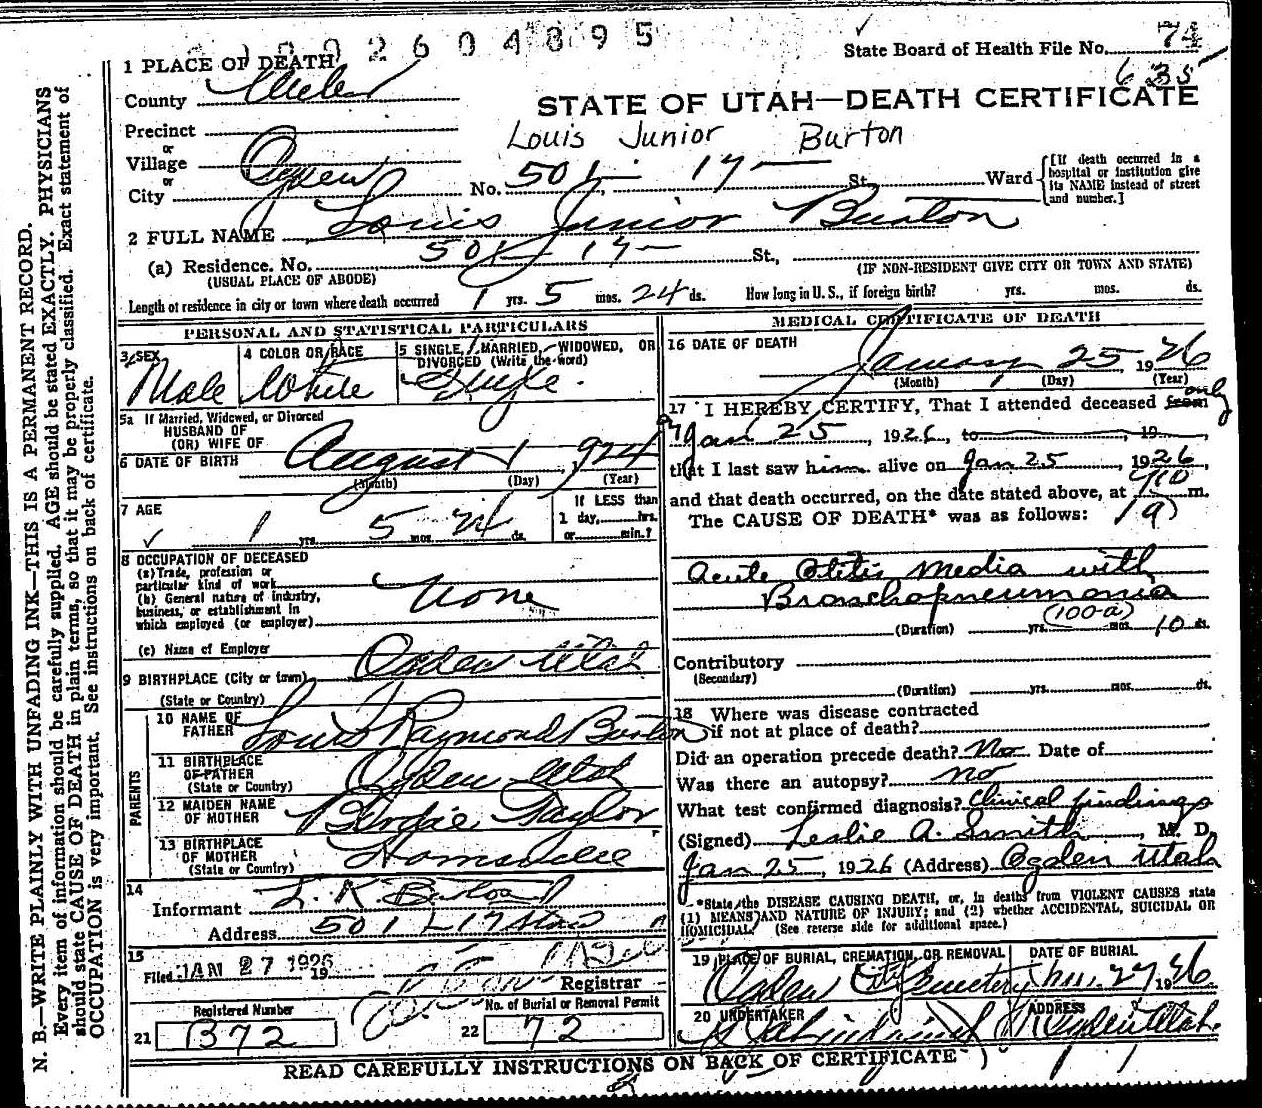 0002604895
State Board of Health File No. 74
635
1 PLACE OF DEATH
County Weber
STATE OF UTAH—DEATH CERTIFICATE
Precinct
or
Village
or
City Ogden
Louis Junior Burton
No. 501 17 St. Ward
[If death occurred in a hospital or institution give its NAME instead of street and number.]
2 FULL NAME Louis Junior Burton
(a) Residence. No. 501 17 St.,
(USUAL PLACE OF ABODE)
(IF NON-RESIDENT GIVE CITY OR TOWN AND STATE)
Length of residence in city or town where death occurred 1 yrs. 5 mos. 24 ds. How long in U. S., if foreign birth? yrs. mos. ds.
PERSONAL AND STATISTICAL PARTICULARS
3 SEX Male
4 COLOR OR RACE White
5 SINGLE, MARRIED, WIDOWED, OR DIVORCED (Write the word) Single.
5a If Married, Widowed, or Divorced
HUSBAND OF
(OR) WIFE OF
6 DATE OF BIRTH August 1 1924
(Month) (Day) (Year)
7 AGE 1 yrs. 5 mos. 24 ds.
If LESS than
1 day, hrs.
or min.?
8 OCCUPATION OF DECEASED
(a) Trade, profession or
particular kind of work
(b) General nature of industry,
business, or establishment in
which employed (or employer) None
(c) Name of Employer
9 BIRTHPLACE (City or town) Ogden Utah
(State or Country)
PARENTS
10 NAME OF FATHER Louis Raymond Burton
11 BIRTHPLACE OF FATHER (State or Country) Ogden Utah
12 MAIDEN NAME OF MOTHER Birdie Taylor
13 BIRTHPLACE OF MOTHER (State or Country)
14
Informant Burton
Address 501
15
Filed JAN 27 1926 19
Registrar
Registered Number
21 B72
No. of Burial or Removal Permit
22 72
MEDICAL CERTIFICATE OF DEATH
16 DATE OF DEATH January 25 1926
(Month) (Day) (Year)
17 I HEREBY CERTIFY, That I attended deceased from only
Jan 25, 1926, to , 19 ,
that I last saw him alive on Jan 25, 1926,
and that death occurred, on the date stated above, at m.
The CAUSE OF DEATH* was as follows:
Acute Otitis Media with
Bronchopneumonia
(100-a)
(Duration) yrs. mos. 10 ds.
Contributory
(Secondary)
(Duration) yrs. mos. ds.
18 Where was disease contracted
if not at place of death?
Did an operation precede death? No Date of
Was there an autopsy? no
What test confirmed diagnosis? Clinical findings
(Signed) Leslie A. Smith, M. D.
Jan 25, 1926 (Address) Ogden Utah
*State the DISEASE CAUSING DEATH, or, in deaths from VIOLENT CAUSES state
(1) MEANS AND NATURE OF INJURY; and (2) whether ACCIDENTAL, SUICIDAL OR
HOMICIDAL. (See reverse side for additional space.)
19 PLACE OF BURIAL, CREMATION, OR REMOVAL Ogden City Cemetery
DATE OF BURIAL 27 1926
20 UNDERTAKER
ADDRESS Ogden Utah.
READ CAREFULLY INSTRUCTIONS ON BACK OF CERTIFICATE
N. B.—WRITE PLAINLY WITH UNFADING INK—THIS IS A PERMANENT RECORD.
Every item of information should be carefully supplied. AGE should be stated EXACTLY. PHYSICIANS
should state CAUSE OF DEATH in plain terms, so that it may be properly classified. Exact statement of
OCCUPATION is very important. See instructions on back of certificate.